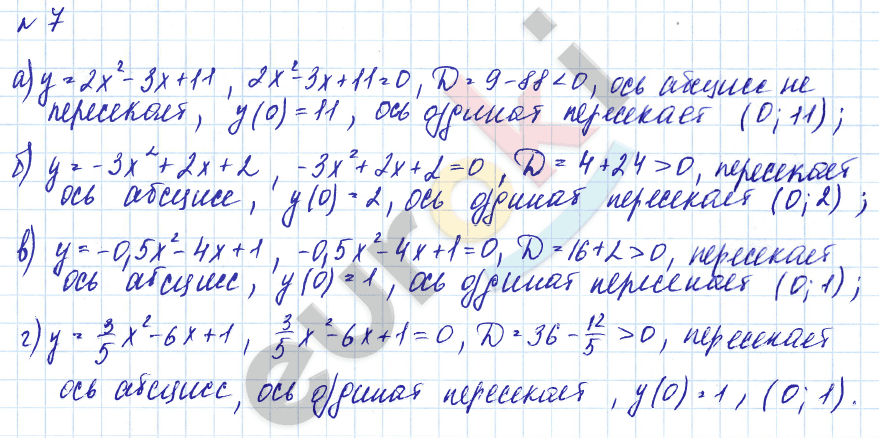 № 7
а) y = 2x² - 3x + 11, 2x² - 3x + 11 = 0, D = 9 - 88 < 0, ось абсцисс не
пересекает, y(0) = 11, ось ординат пересекает (0; 11);
б) y = -3x² + 2x + 2, -3x² + 2x + 2 = 0, D = 4 + 24 > 0, пересекает
ось абсцисс, y(0) = 2, ось ординат пересекает (0; 2);
в) y = -0,5x² - 4x + 1, -0,5x² - 4x + 1 = 0, D = 16 + 2 > 0, пересекает
ось абсцисс, y(0) = 1, ось ординат пересекает (0; 1);
г) y = 3/5 x² - 6x + 1, 3/5 x² - 6x + 1 = 0, D = 36 - 12/5 > 0, пересекает
ось абсцисс, ось ординат пересекает, y(0) = 1, (0; 1).
euroki